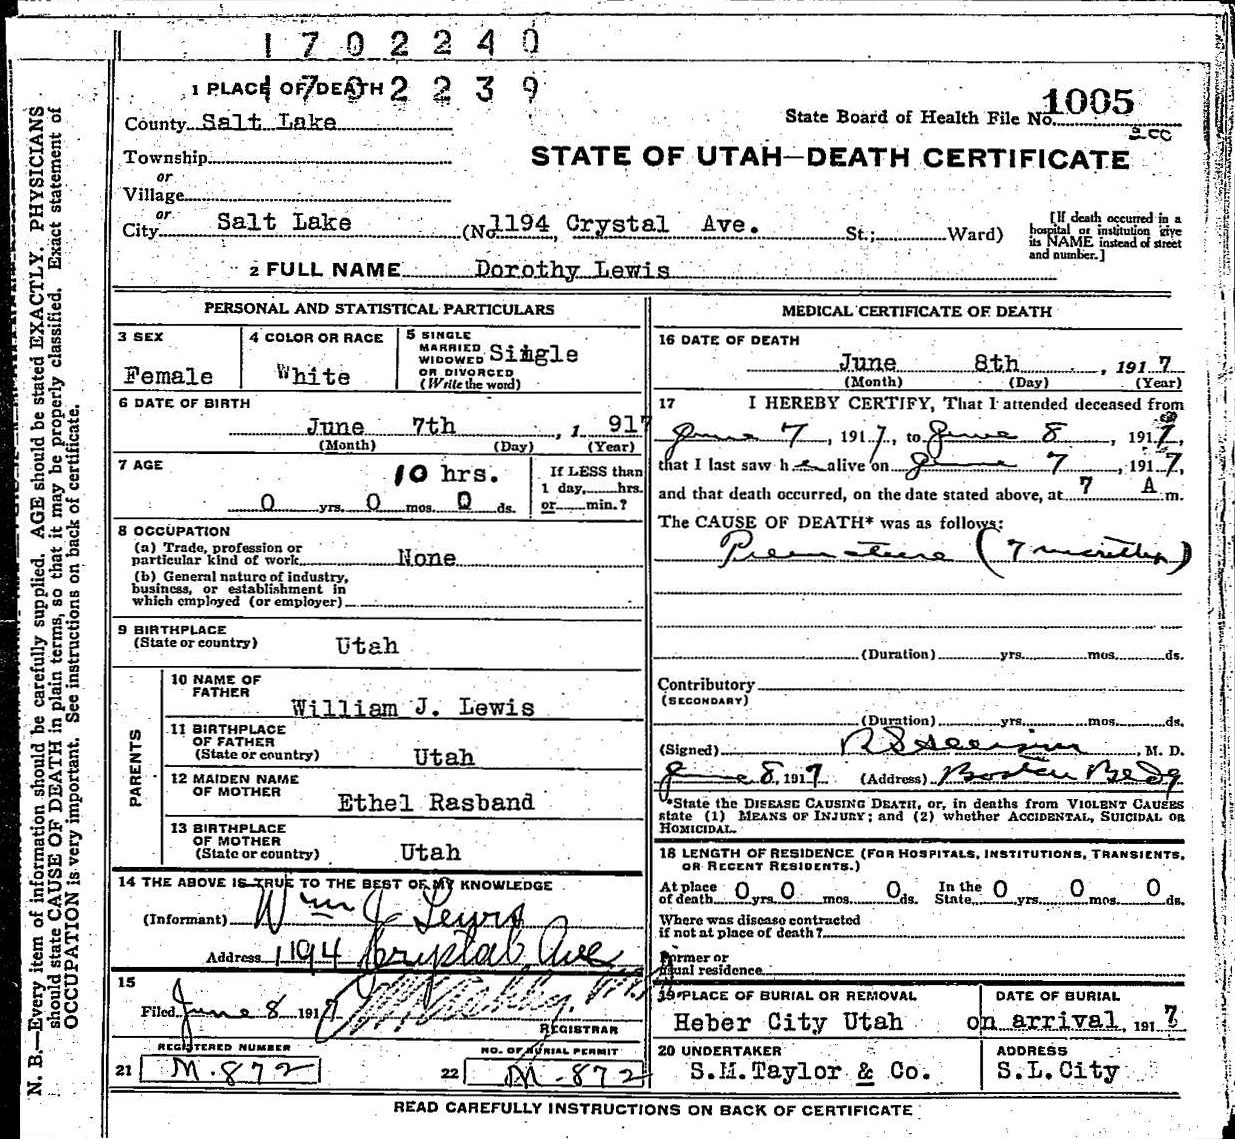 1702240
1702239
1 PLACE OF DEATH
State Board of Health File No. 1005
County Salt Lake
STATE OF UTAH—DEATH CERTIFICATE
Township
or
Village
or
City Salt Lake (No. 1194 Crystal Ave. St.; Ward)
[If death occurred in a hospital or institution give its NAME instead of street and number.]
2 FULL NAME Dorothy Lewis
PERSONAL AND STATISTICAL PARTICULARS
3 SEX
Female
4 COLOR OR RACE
White
5 SINGLE
MARRIED
WIDOWED
OR DIVORCED
(Write the word)
Single
6 DATE OF BIRTH
June 7th, 1917
(Month) (Day) (Year)
7 AGE
10 hrs.
0 yrs. 0 mos. 0 ds.
If LESS than
1 day, hrs.
or min.?
8 OCCUPATION
(a) Trade, profession or
particular kind of work None
(b) General nature of industry,
business, or establishment in
which employed (or employer)
9 BIRTHPLACE
(State or country) Utah
PARENTS
10 NAME OF
FATHER
William J. Lewis
11 BIRTHPLACE
OF FATHER
(State or country) Utah
12 MAIDEN NAME
OF MOTHER
Ethel Rasband
13 BIRTHPLACE
OF MOTHER
(State or country) Utah
14 THE ABOVE IS TRUE TO THE BEST OF MY KNOWLEDGE
(Informant) Wm J Lewis
Address 1194 Crystal Ave
15
Filed June 8 1917
REGISTRAR
REGISTERED NUMBER
21 M-872
NO. OF BURIAL PERMIT
22 M-872
MEDICAL CERTIFICATE OF DEATH
16 DATE OF DEATH
June 8th, 1917
(Month) (Day) (Year)
17 I HEREBY CERTIFY, That I attended deceased from
June 7, 1917, to June 8, 1917,
that I last saw her alive on June 7, 1917,
and that death occurred, on the date stated above, at 7 A m.
The CAUSE OF DEATH* was as follows:
Premature (7 months)
(Duration) yrs. mos. ds.
Contributory
(SECONDARY)
(Duration) yrs. mos. ds.
(Signed) , M. D.
June 8, 1917 (Address) Boston Bldg
*State the DISEASE CAUSING DEATH, or, in deaths from VIOLENT CAUSES
state (1) MEANS OF INJURY; and (2) whether ACCIDENTAL, SUICIDAL OR
HOMICIDAL.
18 LENGTH OF RESIDENCE (FOR HOSPITALS, INSTITUTIONS, TRANSIENTS,
OR RECENT RESIDENTS.)
At place
of death 0 yrs. 0 mos. 0 ds. In the State 0 yrs. 0 mos. 0 ds.
Where was disease contracted
if not at place of death?
Former or
usual residence
19 PLACE OF BURIAL OR REMOVAL
Heber City Utah
DATE OF BURIAL
on arrival, 1917
20 UNDERTAKER
S.M.Taylor & Co.
ADDRESS
S.L.City
READ CAREFULLY INSTRUCTIONS ON BACK OF CERTIFICATE
N. B.—Every item of information should be carefully supplied. AGE should be stated EXACTLY. PHYSICIANS
should state CAUSE OF DEATH in plain terms, so that it may be properly classified. Exact statement of
OCCUPATION is very important. See instructions on back of certificate.